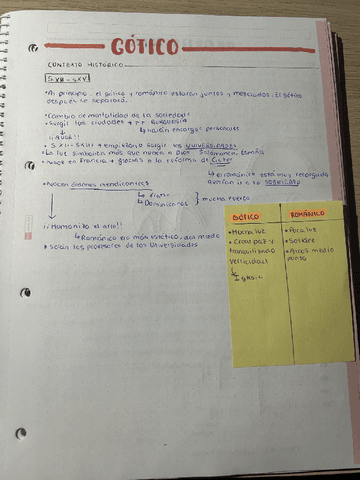 GÓTICO
CONTEXTO HISTÓRICO
S.XII - S.XV
• Al principio el gótico y románico estarán juntos y mezclados. El gótico
después se separará.
• Cambio de mentalidad de la sociedad
• Surgir las ciudades + BURGUESÍA
hacían encargos personales
• S. XII - SXIII → empiezan a surgir las UNIVERSIDADES
• La luz simboliza más que nunca a Dios Salamanca, España
• Nace en Francia → gracias a la reforma de Cister
el románico está muy recargado
querían ir a la sobriedad
• Nacen órdenes mendicantes
Dominicanos
mucha fuerza
¡¡Humaniza el arte!!
Románico era más estético, daba miedo
• Serán los profesores de las Universidades
GÓTICO
• Mucha luz
• Crear paz y
tranquilidad
verticidad
Iglesia
ROMÁNICO
• Poca luz
• Sobrie
• Arcos medio
punto